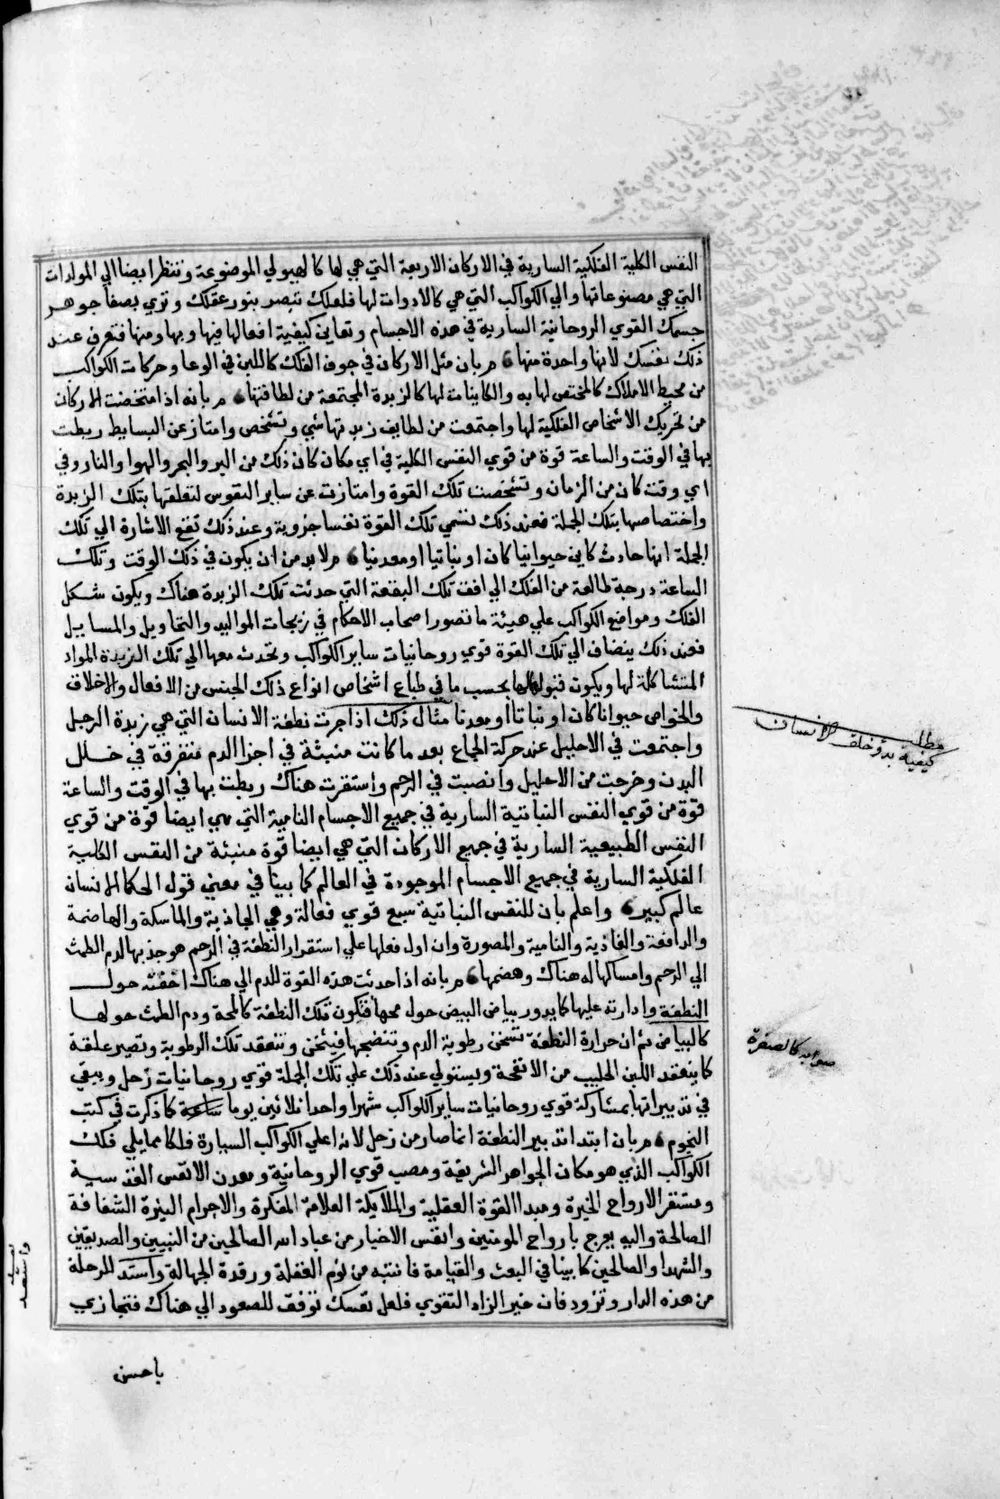 النفس الكلية الفلكية السارية في الاركان الاربعة التي هي لها كالهيولي الموضوعة وتنظر ايضا الي المولدات
التي هي مصنوعاتها والي الكواكب التي هي كالادوات لها فلعلك تبصر بنور عقلك وتري بصفا جوهر
جسمك القوي الروحانية السارية في هذه الاجسام وتعاين كيفية افعالها فيها وبها ومنها فتعرف عند
ذلك نفسك لانها واحدة منها م بان مثل الاركان في جوف الفلك كاللبن في الوعا وحركات الكواكب
من محيط الافلاك كالمخض لها به والكاينات لها كالزبدة المجتمعة من لطافتها م بانه اذا مخضت الاركان
من تحريك الاشخاص الفلكية لها واجتمعت من لطايف زبدتها شي وتشخص وامتاز عن البسايط ربطت
بها في الوقت والساعة قوة من قوي النفس الكلية في اي مكان كان ذلك من البر والبحر والهوا والنار وفي
اي وقت كان من الزمان وتشخصت تلك القوة وامتازت عن ساير النفوس لتعلقها بتلك الزبدة
واختصاصها بتلك الجملة فعند ذلك تسمي تلك القوة نفسا جزوية وعند ذلك تقع الاشارة الي تلك
الجملة انها حادث كاين حيوانيا كان او نباتيا او معدنيا م لابد من ان يكون في ذلك الوقت وتلك
الساعة درجة طالعة من الفلك الي افق تلك البقعة التي حدثت تلك الزبدة هناك ويكون شكل
الفلك ومواضع الكواكب علي هيئة ما تصور اصحاب الاحكام في زيجات المواليد والتحاويل والمسايل
فعند ذلك ينضاف الي تلك القوة قوي روحانيات ساير الكواكب وتحدث معها الي تلك الزبدة المواد
المتشاكلة لها ويكون قبولها بحسب ما في طباع اشخاص انواع ذلك الجنس من الافعال والاخلاق
والخواص حيوانا كان او نباتا او معدنا مثال ذلك اذا جرت نطفة الانسان التي هي زبدة الرجل
واجتمعت في الاحليل عند حركة الجماع بعد ما كانت منبثة في اجزا الدم متفرقة في خلل
البدن وخرجت من الاحليل وانصبت في الرحم واستقرت هناك ربطت بها في الوقت والساعة
قوة من قوي النفس النباتية السارية في جميع الاجسام النامية التي هي ايضا قوة من قوي
النفس الطبيعية السارية في جميع الاركان التي هي ايضا قوة منبثة من النفس الكلية
الفلكية السارية في جميع الاجسام الموجودة في العالم كما بينا في معني قول الحكما الانسان
عالم كبير واعلم بان للنفس النباتية سبع قوي فعالة وهي الجاذبة والماسكة والهاضمة
والدافعة والغاذية والنامية والمصورة وان اول فعلها علي استقرار النطفة في الرحم هو جذبها لدم الطمث
الي الرحم وامساكها له هناك وهضمها م بانه اذا حدثت هذه القوة للدم الي هناك حول
النطفة وادارته عليها كما يدور بياض البيض حول محها فتكون تلك النطفة كالمحة ودم الطمث حولها
كالبياض ثم ان حرارة النطفة تسخن رطوبة الدم وتنضجها فيثخن وتنعقد تلك الرطوبة وتصير علقة
كما ينعقد اللبن الحليب من الانفحة ويستولي عند ذلك علي تلك الجملة قوي روحانيات زحل ويبقي
في تدبيراتها بمشاركة قوي روحانيات ساير الكواكب شهرا واحدا ثلاثين يوما ساعة كما ذكرت في كتب
النجوم م بان ابتدا تدبير النطفة انما صار من زحل لانه اعلي الكواكب السيارة فلكا مما يلي فلك
الكواكب الذي هو مكان الجواهر الشريفة ومصب قوي الروحانية ومعدن الانفس القدسية
ومستقر الارواح الخيرة ومبدا القوة العقلية والملايكة العلامة المفكرة والاجرام النيرة الشفافة
الصالحة واليه يعرج بارواح المومنين وانفس الاخيار من عباد الله الصالحين من النبيين والصديقين
والشهدا والصالحين كما بينا في البعث والقيامة فانتبه من نوم الغفلة ورقدة الجهالة واستعد للرحلة
من هذه الدار وتزود فان خير الزاد التقوي فلعل نفسك توفق للصعود الي هناك فتجازي
مطلب
كيفية بدؤ خلق الانسان
صوابه كالصفرة
باحسن